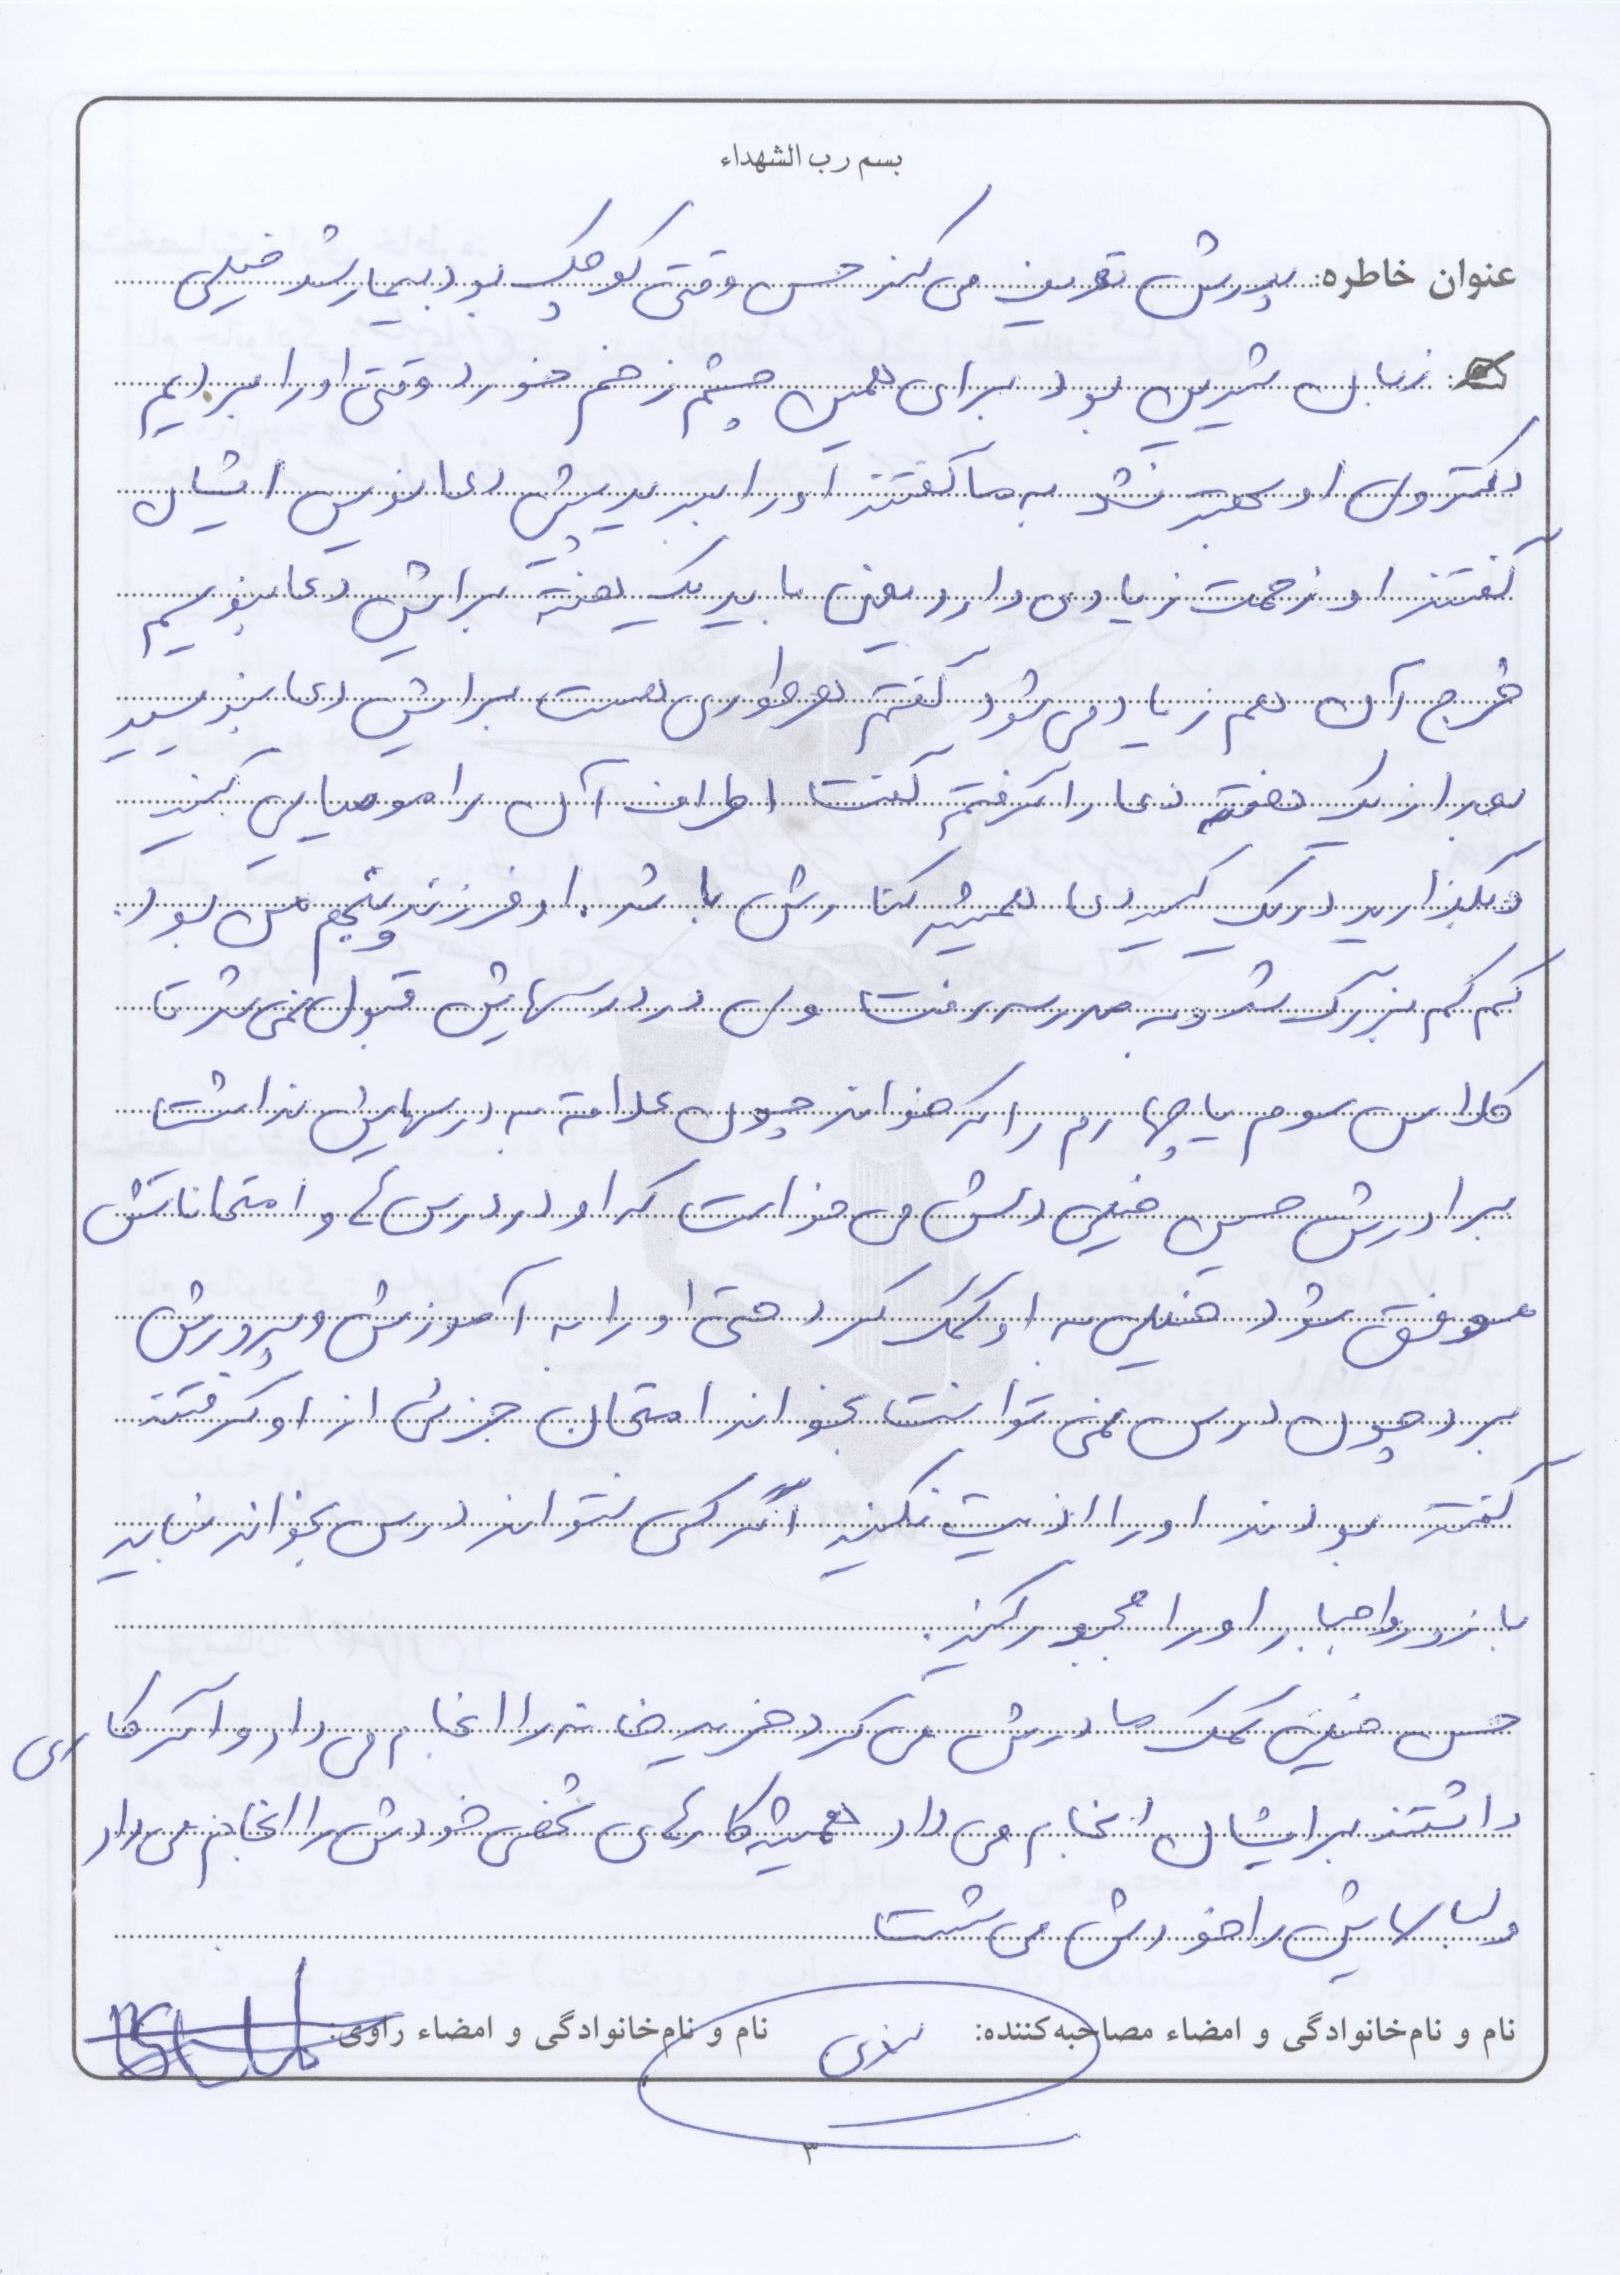 بسم رب الشهداء
عنوان خاطره: پدرش تعریف می کند حسن وقتی کوچک بود بیمار شد خیلی
زبان شیرین بود برای همین چشم زخم خورد وقتی او را بردیم
دکتر ولی او بهتر نشد به ما گفتند او را ببرید پیش دعا نویس ایشان
گفتند او زحمت زیادی دارد یعنی باید یک هفته برایش دعا بنویسیم
خرج آن هم زیاد می شود گفتم هر طوری هست برایش دعا بنویسید
بعد از یک هفته دعا را گرفتم گفت اطراف آن را مومیایی کنید
و بگذارید در یک کیسه دعا همیشه کنارش باشد. او فرزند پنجم من بود.
کم کم بزرگ شد و به مدرسه رفت ولی در درسهایش قبول نمی شد تا
کلاس سوم یا چهارم را که خواند چون علاقه به درسهایش نداشت
برادرش حسین خیلی دلش می خواست که او در درس ها و امتحاناتش
موفق شود خیلی به او کمک کرد حتی او را به آموزش و پرورش
برد چون درس نمی توانست بخواند امتحان جزئی از او گرفتند
گفته بودند او را اذیت نکنید اگر کسی نتواند درس بخواند نباید
با زور و اجبار او را مجبور کنید.
حسن خیلی کمک مادرش می کرد خرید خانه را انجام می داد و اگر کاری
داشتند برایشان انجام می داد همیشه کارهای شخصی خودش را انجام می داد
و لباسهایش را خودش می شست
نام و نام‌خانوادگی و امضاء مصاحبه‌کننده: نام و نام‌خانوادگی و امضاء راوی:
۳